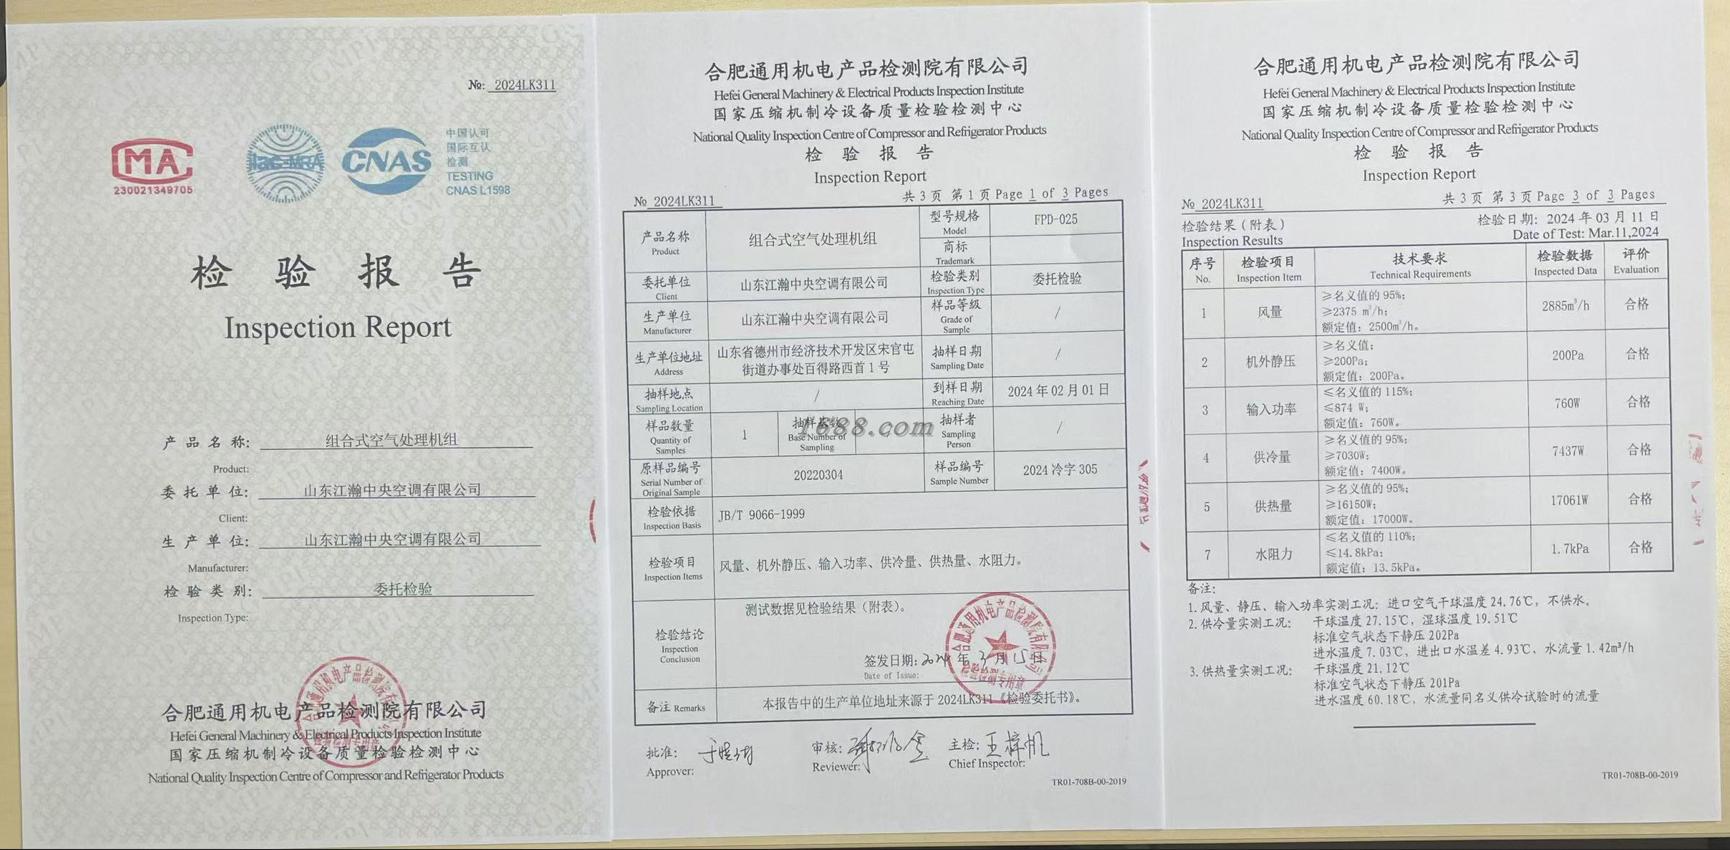 №: 2024LK311
MA
230021349705
ilac-MRA
CNAS
中国认可
国际互认
检测
TESTING
CNAS L1598
检验报告
Inspection Report
产品名称: 组合式空气处理机组
Product:
委托单位: 山东江瀚中央空调有限公司
Client:
生产单位: 山东江瀚中央空调有限公司
Manufacturer:
检验类别: 委托检验
Inspection Type:
合肥通用机电产品检测院有限公司
Hefei General Machinery & Electrical Products Inspection Institute
国家压缩机制冷设备质量检验检测中心
National Quality Inspection Centre of Compressor and Refrigerator Products
合肥通用机电产品检测院有限公司
Hefei General Machinery & Electrical Products Inspection Institute
国家压缩机制冷设备质量检验检测中心
National Quality Inspection Centre of Compressor and Refrigerator Products
检验报告
Inspection Report
№ 2024LK311 共 3 页 第 1 页 Page 1 of 3 Pages
产品名称 Product 组合式空气处理机组 型号规格 Model FPD-025
商标 Trademark
委托单位 Client 山东江瀚中央空调有限公司 检验类别 Inspection Type 委托检验
生产单位 Manufacturer 山东江瀚中央空调有限公司 样品等级 Grade of Sample /
生产单位地址 Address 山东省德州市经济技术开发区宋官屯街道办事处百得路西首1号 抽样日期 Sampling Date /
抽样地点 Sampling Location / 到样日期 Reaching Date 2024 年 02 月 01 日
样品数量 Quantity of Samples 1 抽样基数 Base Number of Sampling 抽样者 Sampling Person /
1688.com
原样品编号 Serial Number of Original Sample 20220304 样品编号 Sample Number 2024 冷字 305
检验依据 Inspection Basis JB/T 9066-1999
检验项目 Inspection Items 风量、机外静压、输入功率、供冷量、供热量、水阻力。
检验结论 Inspection Conclusion 测试数据见检验结果（附表）。
签发日期: 2024 年 3 月 15 日
Date of Issue:
合肥通用机电产品检测院有限公司
检验检测专用章
备注 Remarks 本报告中的生产单位地址来源于 2024LK311《检验委托书》。
批准: 审核: 主检: 王梓帆
Approver: Reviewer: Chief Inspector:
TR01-708B-00-2019
合肥通用机电产品检测院有限公司
Hefei General Machinery & Electrical Products Inspection Institute
国家压缩机制冷设备质量检验检测中心
National Quality Inspection Centre of Compressor and Refrigerator Products
检验报告
Inspection Report
№ 2024LK311 共 3 页 第 3 页 Page 3 of 3 Pages
检验结果（附表） 检验日期: 2024 年 03 月 11 日
Inspection Results Date of Test: Mar.11,2024
序号 No. 检验项目 Inspection Item 技术要求 Technical Requirements 检验数据 Inspected Data 评价 Evaluation
1 风量 ≥名义值的 95%; ≥2375 m³/h; 额定值: 2500m³/h。 2885m³/h 合格
2 机外静压 ≥名义值; ≥200Pa; 额定值: 200Pa。 200Pa 合格
3 输入功率 ≤名义值的 115%; ≤874 W; 额定值: 760W。 760W 合格
4 供冷量 ≥名义值的 95%; ≥7030W; 额定值: 7400W。 7437W 合格
5 供热量 ≥名义值的 95%; ≥16150W; 额定值: 17000W。 17061W 合格
7 水阻力 ≤名义值的 110%; ≤14.8kPa; 额定值: 13.5kPa。 1.7kPa 合格
备注:
1. 风量、静压、输入功率实测工况: 进口空气干球温度 24.76℃, 不供水。
2. 供冷量实测工况: 干球温度 27.15℃, 湿球温度 19.51℃
标准空气状态下静压 202Pa
进水温度 7.03℃, 进出口水温差 4.93℃, 水流量 1.42m³/h
3. 供热量实测工况: 干球温度 21.12℃
标准空气状态下静压 201Pa
进水温度 60.18℃, 水流量同名义供冷试验时的流量
TR01-708B-00-2019